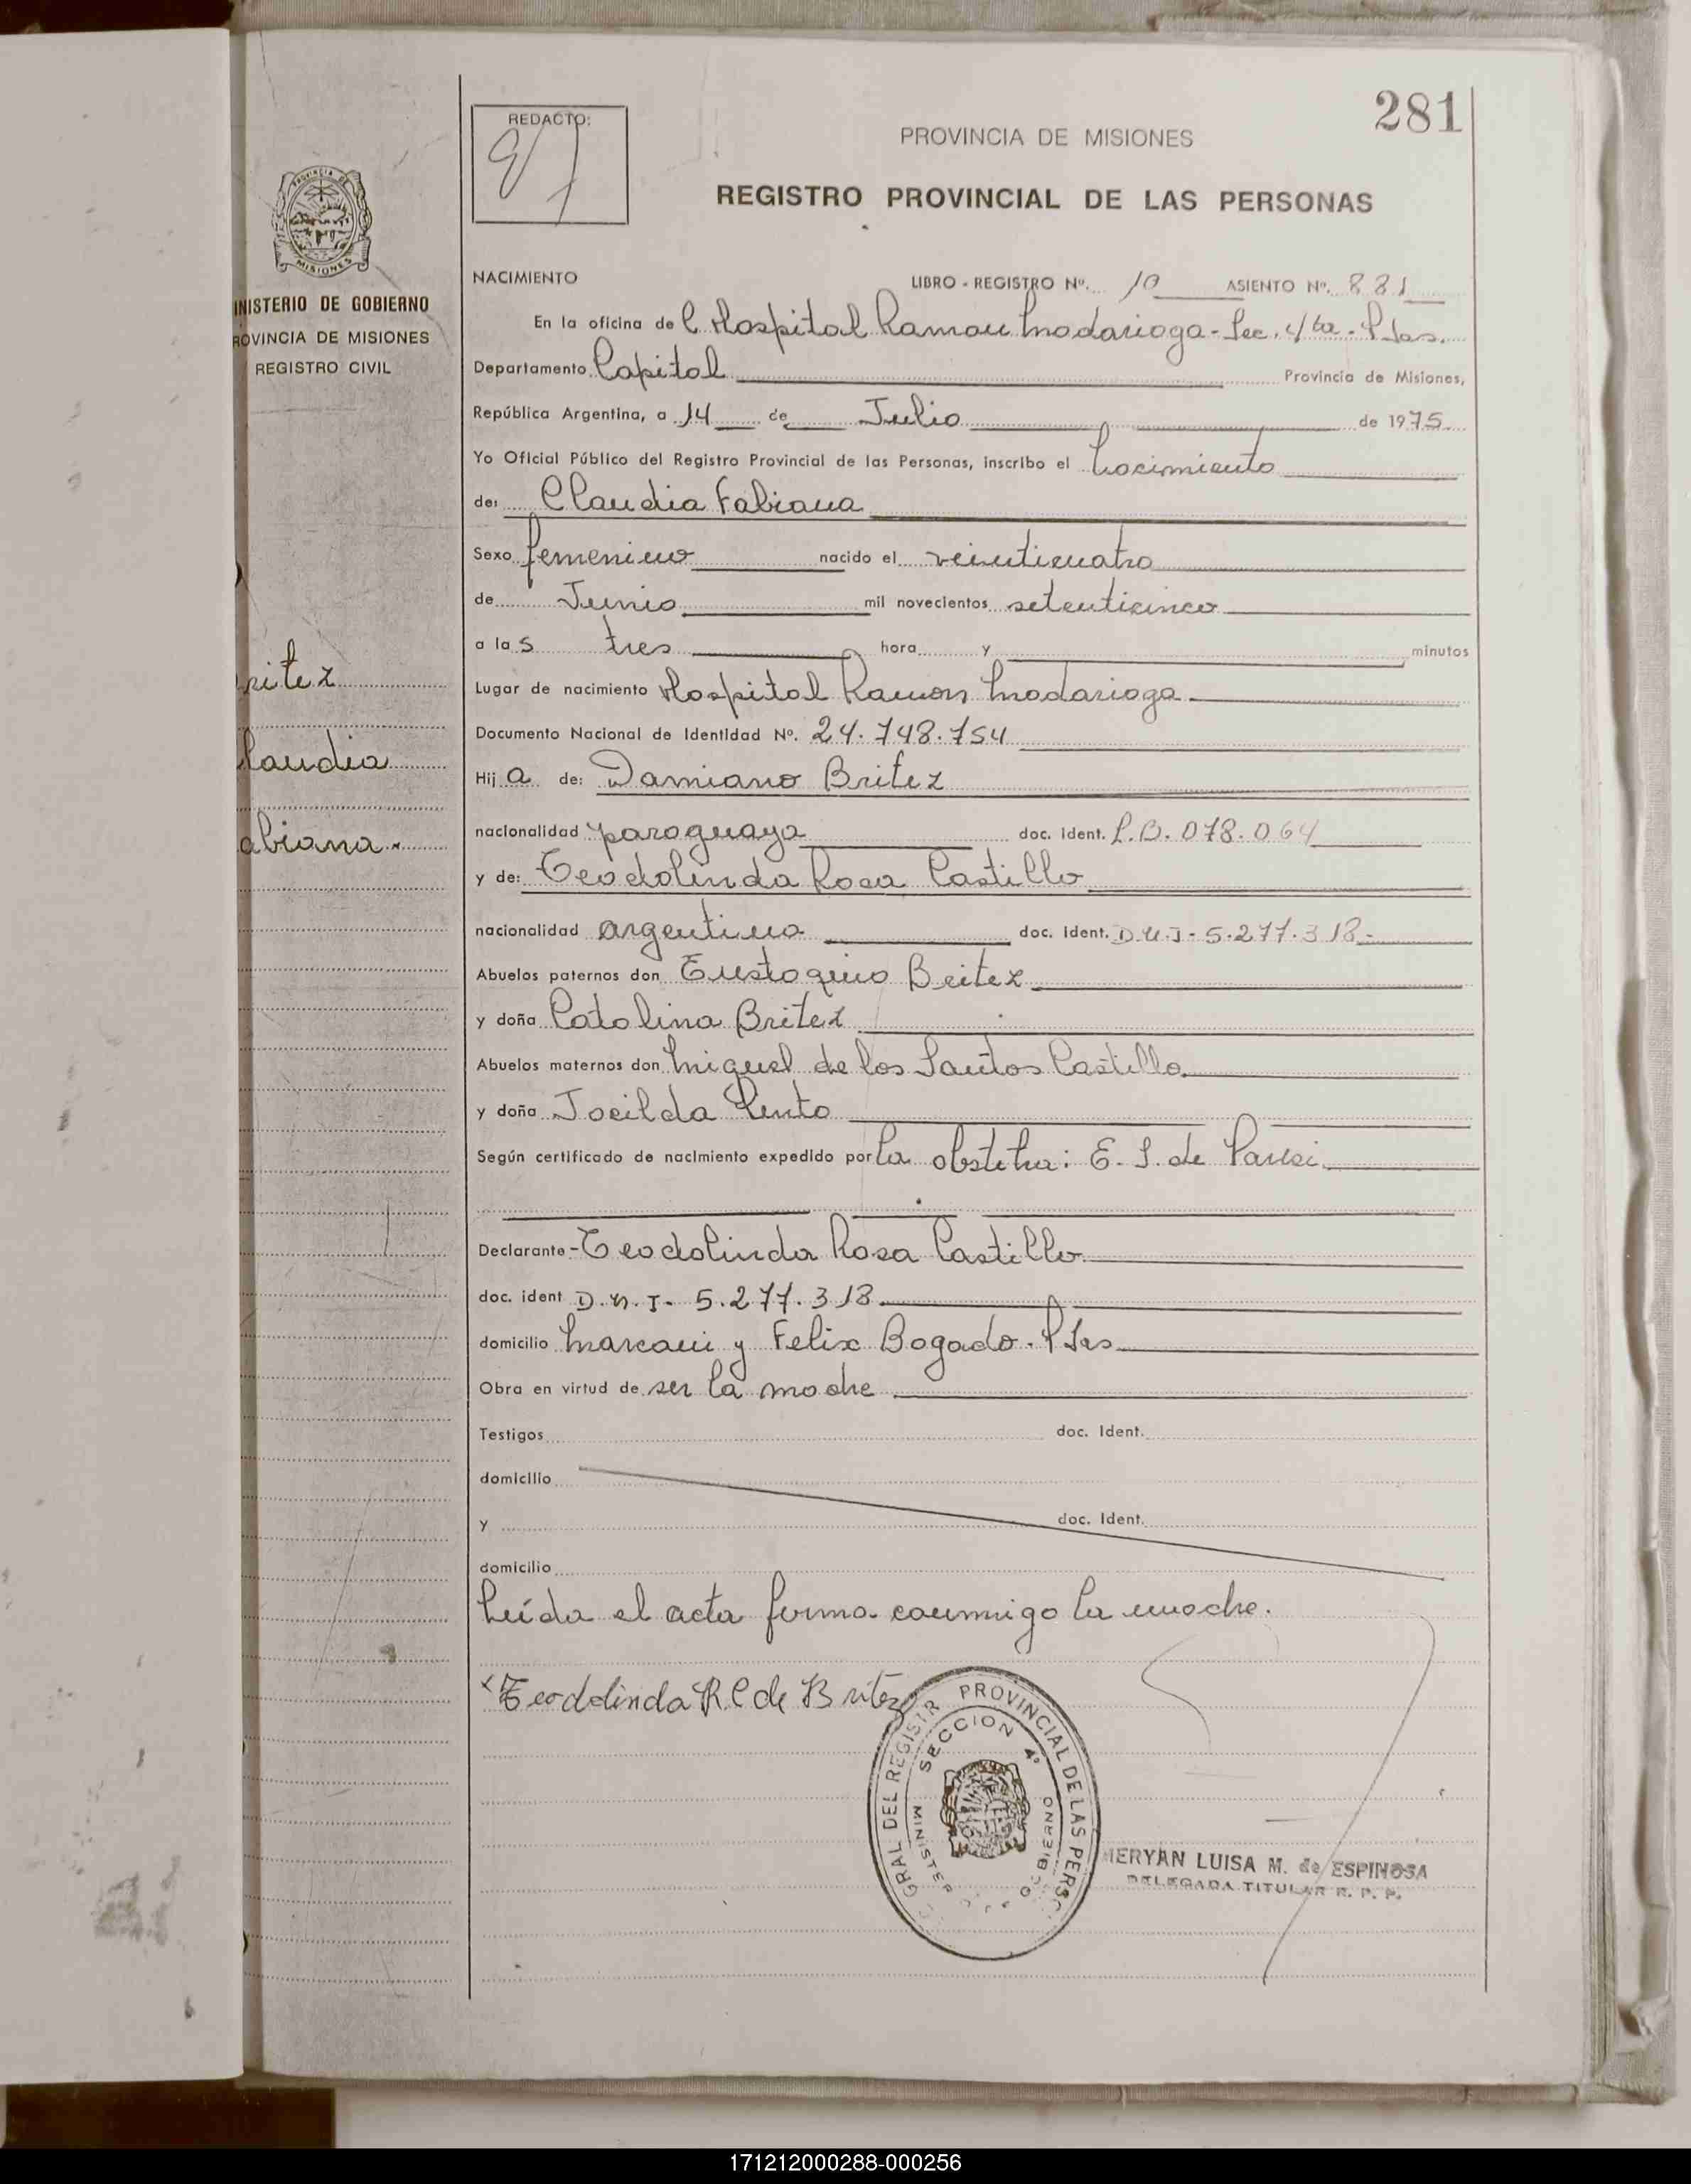 281
REDACTO:
PROVINCIA DE MISIONES
REGISTRO PROVINCIAL DE LAS PERSONAS
MISIONES
INISTERIO DE GOBIERNO
ROVINCIA DE MISIONES
REGISTRO CIVIL
ritez
laudia
abiana.
NACIMIENTO LIBRO - REGISTRO Nº. 10 ASIENTO Nº. 881
En la oficina del Hospital Ramon Madariaga - Sec. 4/ta - Pdas.
Departamento Capital Provincia de Misiones,
República Argentina, a 14 de Julio de 1975
Yo Oficial Público del Registro Provincial de las Personas, inscribo el Nacimiento
de: Claudia Fabiana
Sexo femenino nacido el veinticuatro
de Junio mil novecientos setenticinco
a las tres hora y minutos
Lugar de nacimiento Hospital Ramon Madariaga
Documento Nacional de Identidad Nº. 24.748.754
Hija de: Damiano Britez
nacionalidad paraguaya doc. ident. L.B. 078.064
y de: Teodolinda Rosa Castillo
nacionalidad argentina doc. ident. D.N.I - 5.277.318-
Abuelos paternos don Eustoquio Britez
y doña Catolina Britez
Abuelos maternos don Miguel de los Santos Castillo
y doña Jocilda Pinto
Según certificado de nacimiento expedido por la obstetra: E. S. de
Declarante - Teodolinda Rosa Castillo
doc. ident D.N.I- 5.277.318
domicilio Marconi y Felix Bogado. Pdas
Obra en virtud de ser la madre
Testigos doc. Ident.
domicilio
y doc. Ident.
domicilio
Leída el acta firma conmigo la madre.
x Teodolinda R.C de Britez
GRAL DEL REGISTR PROVINCIAL DE LAS PERSO
SECCION 4º
MINISTER GOBIERNO
MERYAN LUISA M. de ESPINOSA
DELEGADA TITULAR R. P. P.
171212000288-000256